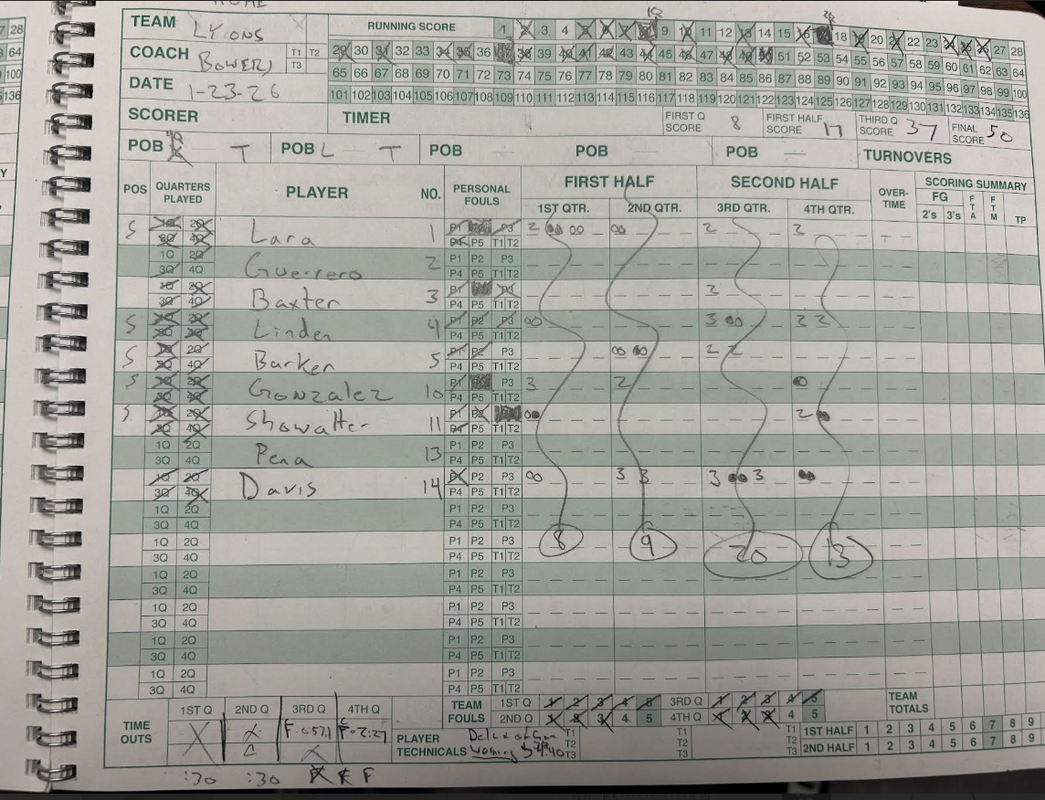 TEAM LYONS RUNNING SCORE 1 2 3 4 5 6 7 8 9 10 11 12 13 14 15 16 17 18 19 20 21 22 23 24 25 26 27 28
COACH BOWERS T1 T2 T3 29 30 31 32 33 34 35 36 37 38 39 40 41 42 43 44 45 46 47 48 49 50 51 52 53 54 55 56 57 58 59 60 61 62 63 64
65 66 67 68 69 70 71 72 73 74 75 76 77 78 79 80 81 82 83 84 85 86 87 88 89 90 91 92 93 94 95 96 97 98 99 100
DATE 1-23-26 101 102 103 104 105 106 107 108 109 110 111 112 113 114 115 116 117 118 119 120 121 122 123 124 125 126 127 128 129 130 131 132 133 134 135 136
SCORER TIMER FIRST Q SCORE 8 FIRST HALF SCORE 17 THIRD Q SCORE 37 FINAL SCORE 50
POB T POB L T POB POB POB TURNOVERS
POS QUARTERS PLAYED PLAYER NO. PERSONAL FOULS FIRST HALF SECOND HALF OVER-TIME SCORING SUMMARY
1ST QTR. 2ND QTR. 3RD QTR. 4TH QTR. FG 2's 3's FTA FTM TP
S 1Q 2Q 3Q 4Q Lara 1 P1 P2 P3 P4 P5 T1 T2 2 2 2
1Q 2Q 3Q 4Q Guerrero 2 P1 P2 P3 P4 P5 T1 T2
1Q 2Q 3Q 4Q Baxter 3 P1 P2 P3 P4 P5 T1 T2 2
S 1Q 2Q 3Q 4Q Linden 4 P1 P2 P3 P4 P5 T1 T2 3 3 2
S 1Q 2Q 3Q 4Q Barker 5 P1 P2 P3 P4 P5 T1 T2 2 2
S 1Q 2Q 3Q 4Q Gonzalez 10 P1 P2 P3 P4 P5 T1 T2 3 2
S 1Q 2Q 3Q 4Q Showalter 11 P1 P2 P3 P4 P5 T1 T2 2
1Q 2Q 3Q 4Q Pena 13 P1 P2 P3 P4 P5 T1 T2
1Q 2Q 3Q 4Q Davis 14 P1 P2 P3 P4 P5 T1 T2 3 3 3 3
1Q 2Q 3Q 4Q P1 P2 P3 P4 P5 T1 T2
1Q 2Q 3Q 4Q P1 P2 P3 P4 P5 T1 T2 8 9 20 13
1Q 2Q 3Q 4Q P1 P2 P3 P4 P5 T1 T2
1Q 2Q 3Q 4Q P1 P2 P3 P4 P5 T1 T2
1Q 2Q 3Q 4Q P1 P2 P3 P4 P5 T1 T2
1Q 2Q 3Q 4Q P1 P2 P3 P4 P5 T1 T2
TIME OUTS 1ST Q 2ND Q 3RD Q 4TH Q TEAM FOULS 1ST Q 1 2 3 4 5 3RD Q 1 2 3 4 5 TEAM TOTALS
2ND Q 1 2 3 4 5 4TH Q 1 2 3 4 5
PLAYER TECHNICALS Delay of Game Warning T1 T2 T3 T1 T2 T3 T1 T2 T3 1ST HALF 1 2 3 4 5 6 7 8 9
2ND HALF 1 2 3 4 5 6 7 8 9
:30 :30 F F